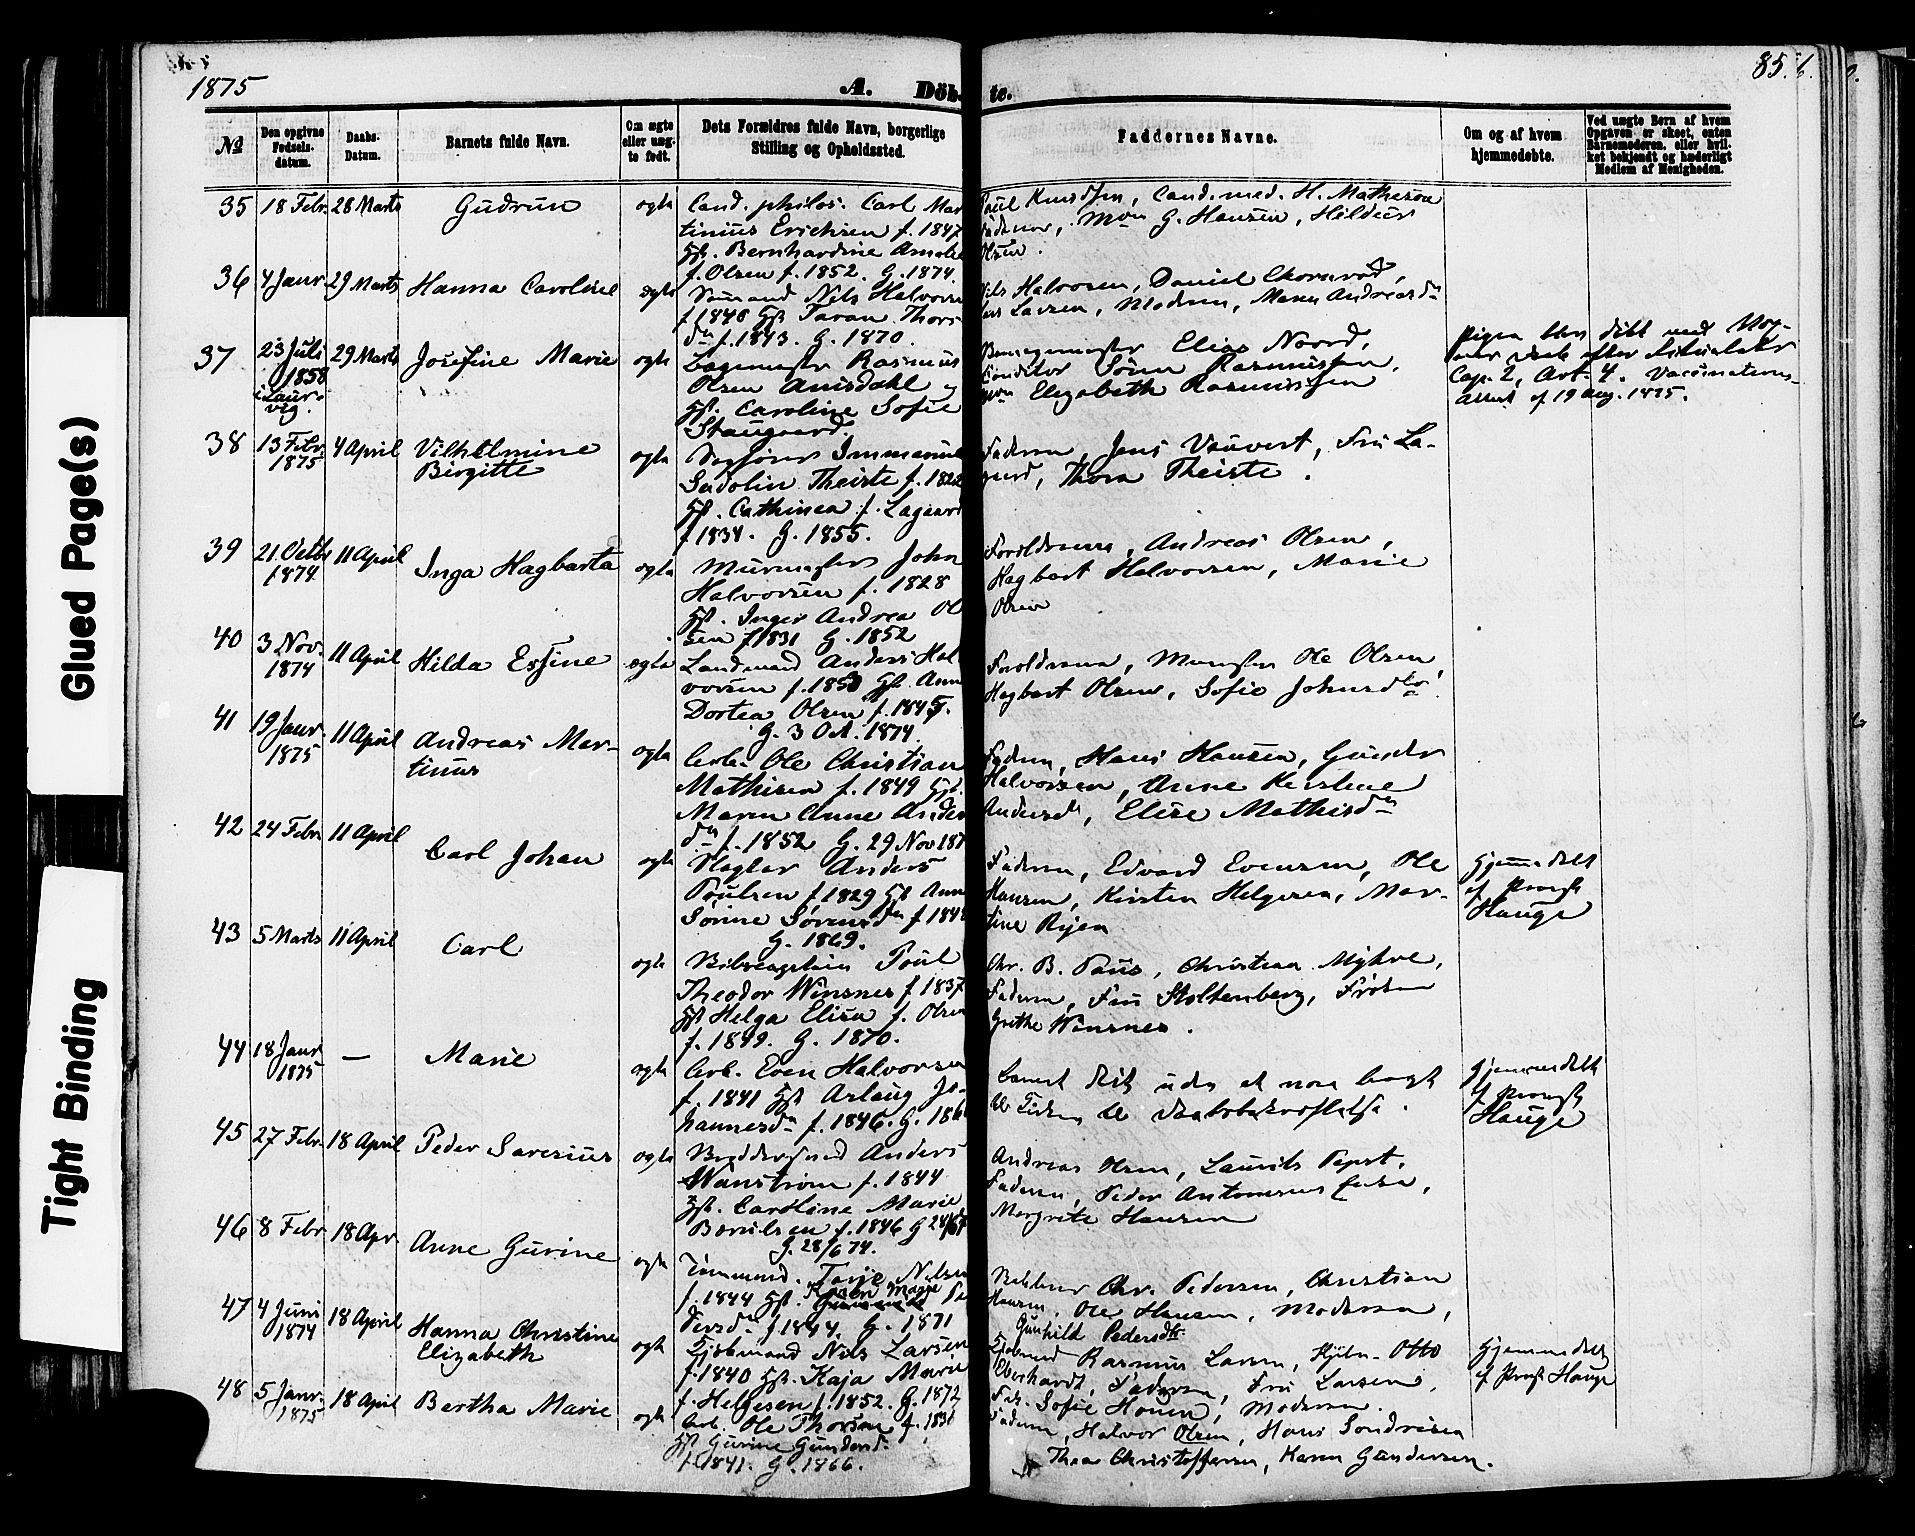 Glued Page(s)
Tight Binding
1875
A. Döb- te.
85.
№
Den opgivne Fødsels- datum.
Daabs- Datum.
Barnets fulde Navn.
Om ægte eller uæg- te født.
Dets Forældres fulde Navn, borgerlige Stilling og Opholdssted.
Faddernes Navne.
Om og af hvem hjemmedøbte.
Ved uægte Børn af hvem Opgaven er skeet, enten Barnemoderen, eller hvil- ket bekjendt og hæderligt Medlem af Menigheden.
35 18 Febr. 28 Marts Gudrun ægte Cand. philos. Carl Mar-
tinius Erichsen f. 1847
Hst. Bernhardine Amalie
f. Olsen f. 1852. G. 1874.
Poul Knudsen, Cand. med. H. Mathesen
G. Hansen, Hildeur
Olsen.
36 4 Janr. 29 Marts Hanna Caroline ægte Sømand Nils Halvorsen
f. 1840 Hst. Taran Thors-
dn f. 1843. G. 1870.
Nils Halvorsen, Daniel
Larsen, Modren, Maren Andreasdn
37 23 Juli 1858 i Laur- vig. 29 Marts Josefine Marie ægte Bagermester Rasmus
Olsen Amsdahl og
Hst. Caroline Sofie
Staugaard.
Elias Nored,
Conditor Sören Rasmussen,
Elizabeth Rasmussen
Pigen blev døbt med
efter Ritualets
Cap. 2, Art. 4. Vaccinations-
Attest af 19 Aug. 1875.
38 13 Febr. 1875 4 April Vilhelmine
Birgitte ægte Immanuel
Sadolin Theiste f. 1822
Hst. Cathinca f. Lagaard
f. 1834. G. 1855.
Fadren, Jens Vauvert, Fru La-
gaard, Thora Theiste.
39 21. Octbr 1874 11 April Inga Hagbarta ægte Murmester John
Halvorsen f. 1828
Hst. Inger Andrea Ol-
sen f. 1831 G. 1852
Forældrene, Andreas Olsen,
Hagbart Halvorsen, Marie
Olsen
40 3 Nov. 1874 11 April Hilda Essine ægte Landmand Anders Hal-
vorsen f. 1850 Hst. Anne
Dortea Olsen f. 1845.
G. 3 Oct. 1874.
Forældrene, Ole Olsen,
Hagbart Olsen, Sofie Johnsdtr.
41 19 Janr. 1875 11 April Andreas Mar-
tinus ægte Arb. Ole Christian
Mathisen f. 1849 Hst.
Maren Anne Anders-
dn f. 1852 G. 29 Nov 187
Fadren, Hans Hansen, Gunder
Halvorsen, Anne Kirstine
Andersd, Elise Mathisdn
42 24 Febr. 11 April Carl Johan ægte Slagter Anders
Poulsen f. 1829 Hst Anne
Sörine Sörensdn f. 1848
G. 1869.
Fadren, Edvard Evensen, Ole
Hansen, Kirsten Helgesen, Mar-
tine Ryen
Hjemmedøbt
af Provst
Hauge
43 5 Marts 11 April Carl ægte Poul
Theodor Winsnes f. 1837
Hst Helga Elisa f. Olsen
f. 1849. G. 1870.
Chr. B. Paus, Christian Myhre,
Fadren, Fru Stoltenberg, Fröken
Grethe Winsnes.
44 18 Janr 1875 — Marie ægte Arb. Even Halvorsen
f. 1841 Hst Aslaug Jo-
hannesdn f. 1846. G. 186
Barnet
Hjemmedøbt
af Provst
Hauge
45 27 Febr. 18 April Peder Severius ægte Anders
Wanström f. 1844
Hst. Caroline Marie
f. 1846 G.
G. 28/6 74.
Andreas Olsen, Laurits
Fadren, Peder Antonsens
Margrete Hansen
46 8 Febr 18 Apr Anne Gurine ægte Tömmermd. Terje Nilsen
f. 1844 Hst. Karen Marie Pe-
dersdn f. 1844. G. 1871
Chr. Pedersen, Christian
Hansen, Ole Hansen, Moderen,
Gunhild Pedersdtr.
47 4 Juni 1874 18 April Hanna Christine
Elizabeth ægte Nils Larsen
f. 1840 Hst. Kaja Marie
f. Helgesen f. 1852. G. 1872
Rasmus Larsen, Otto
Eberhardt, Faderen, Fru Larsen,
Sofie Houen, Moderen.
Hjemmedøbt
af Provst Hauge
48 5 Janr. 1875 18 April Bertha Marie ægte Arb. Ole Thorsen f. 1830
Hst Gurine Gundersd.
f. 1841. G. 1866.
Fadren, Halvor Olsen, Hans Sondresen
Thea Christoffersen, Karen Gundersen.